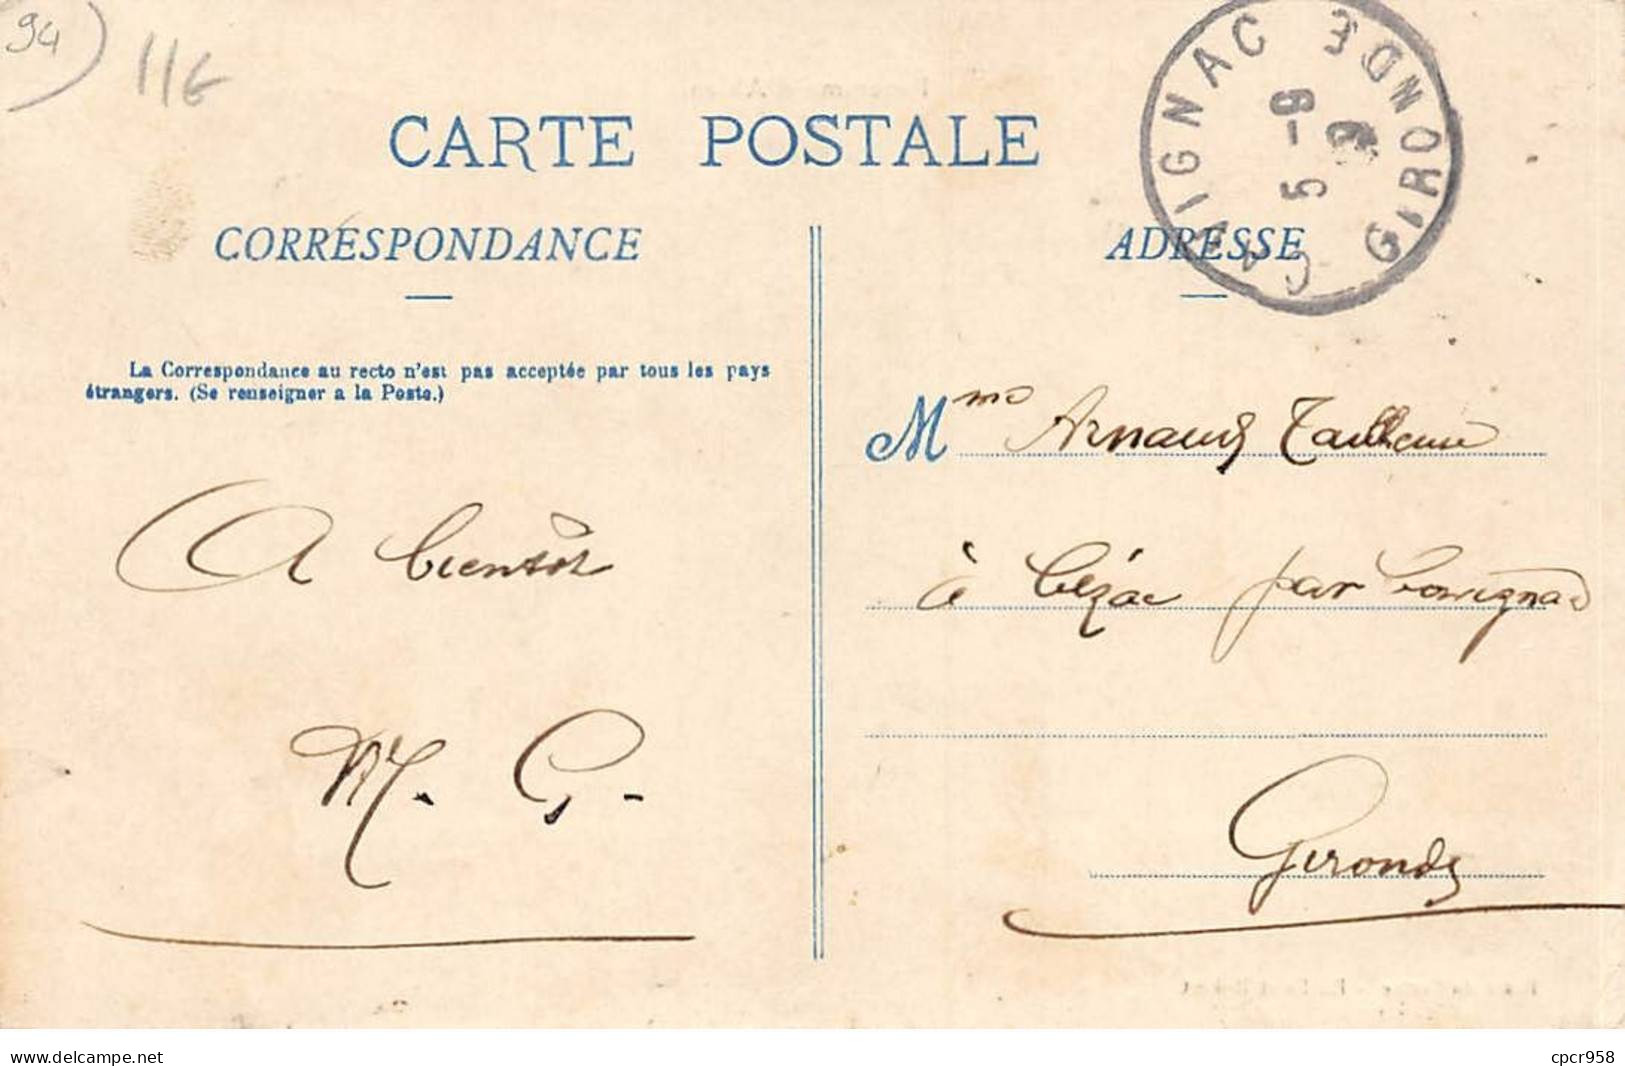 94
11G
CARTE POSTALE
CAVIGNAC GIRONDE
5 - 9
CORRESPONDANCE
ADRESSE
La Correspondance au recto n'est pas acceptée par tous les pays
étrangers. (Se renseigner a la Poste.)
Mme Arnaud
A bientôt
à Cézac par Cavignac
M. G.
Gironde
www.delcampe.net
cpcr958